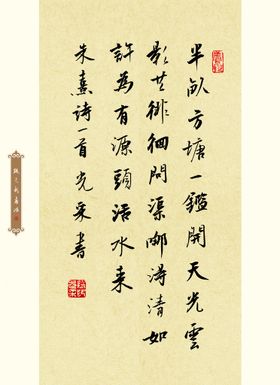 半畝方塘一鑑開天光雲
影共徘徊問渠哪得清如
許為有源頭活水来
朱熹诗一首光采書